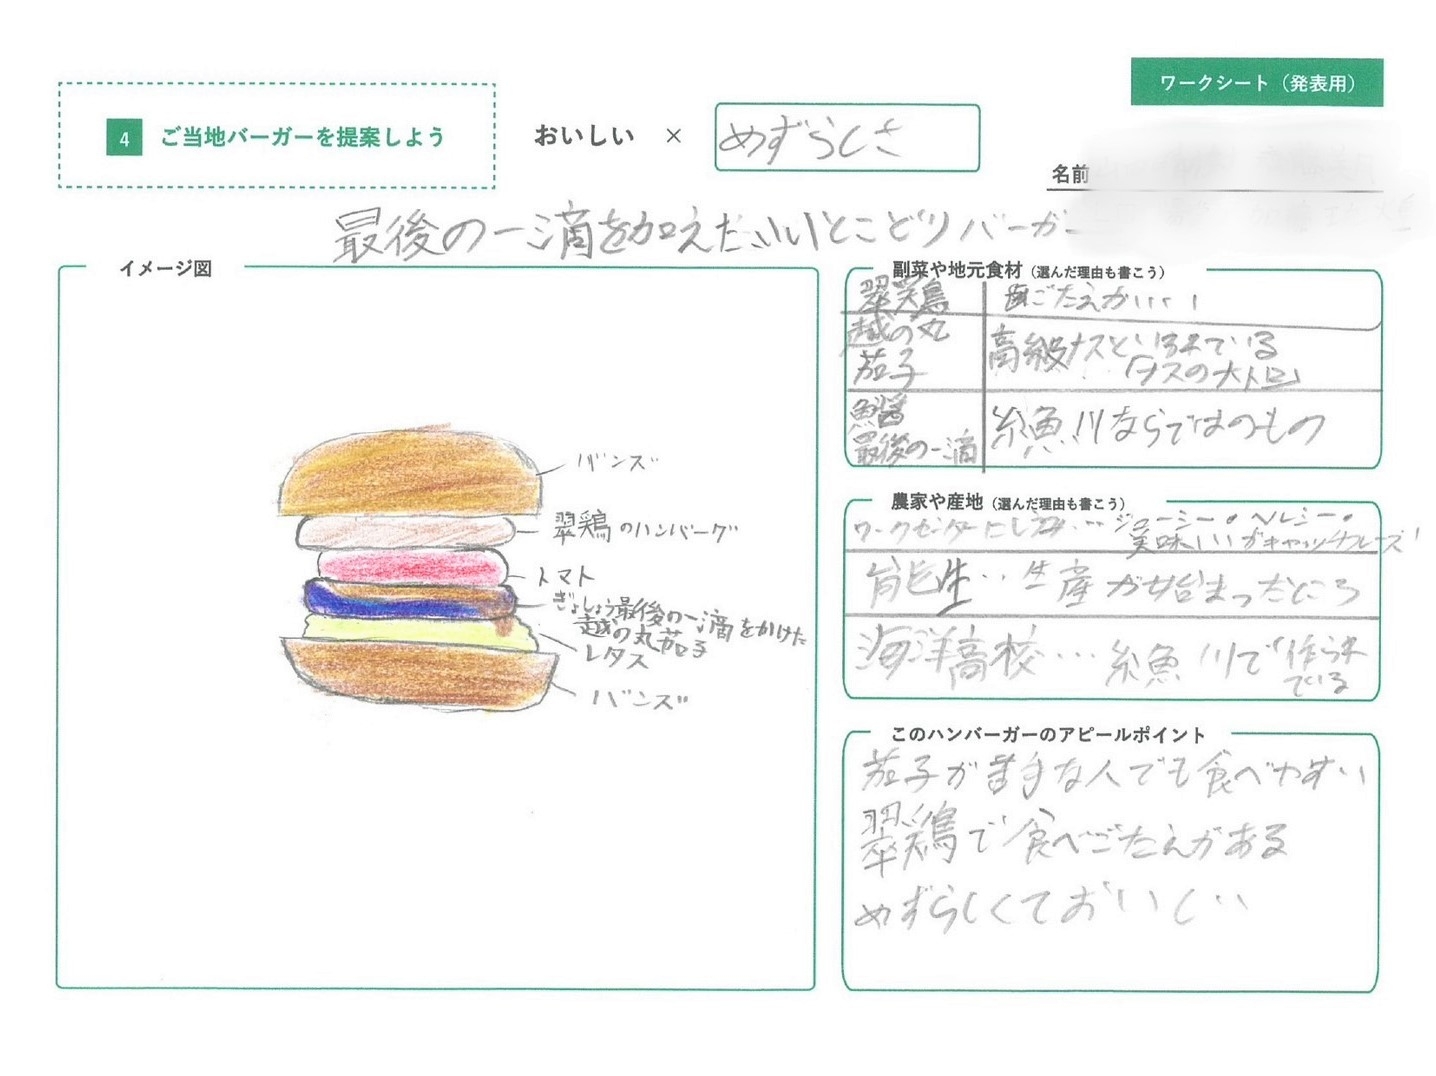 ワークシート（発表用）
4 ご当地バーガーを提案しよう
おいしい × めずらしさ
名前
最後の一滴を加えたいいとこどりバーガー
イメージ図
バンズ
翠鶏のハンバーグ
トマト
ぎょしょう最後の一滴をかけた
越の丸茄子
レタス
バンズ
副菜や地元食材（選んだ理由も書こう）
翠鶏 歯ごたえがいい
越の丸
茄子
高級ナスといわれている
「ナスの大トロ」
魚醤
最後の一滴
糸魚川ならではのもの
農家や産地（選んだ理由も書こう）
ワークセンターにしうみ… ジューシー。ヘルシー。
美味しいがキャッチフレーズ！
能生… 生産が始まったところ
海洋高校… 糸魚川で作られ
ている
このハンバーガーのアピールポイント
茄子が苦手な人でも食べやすい
翠鶏で食べごたえがある
めずらしくておいしい